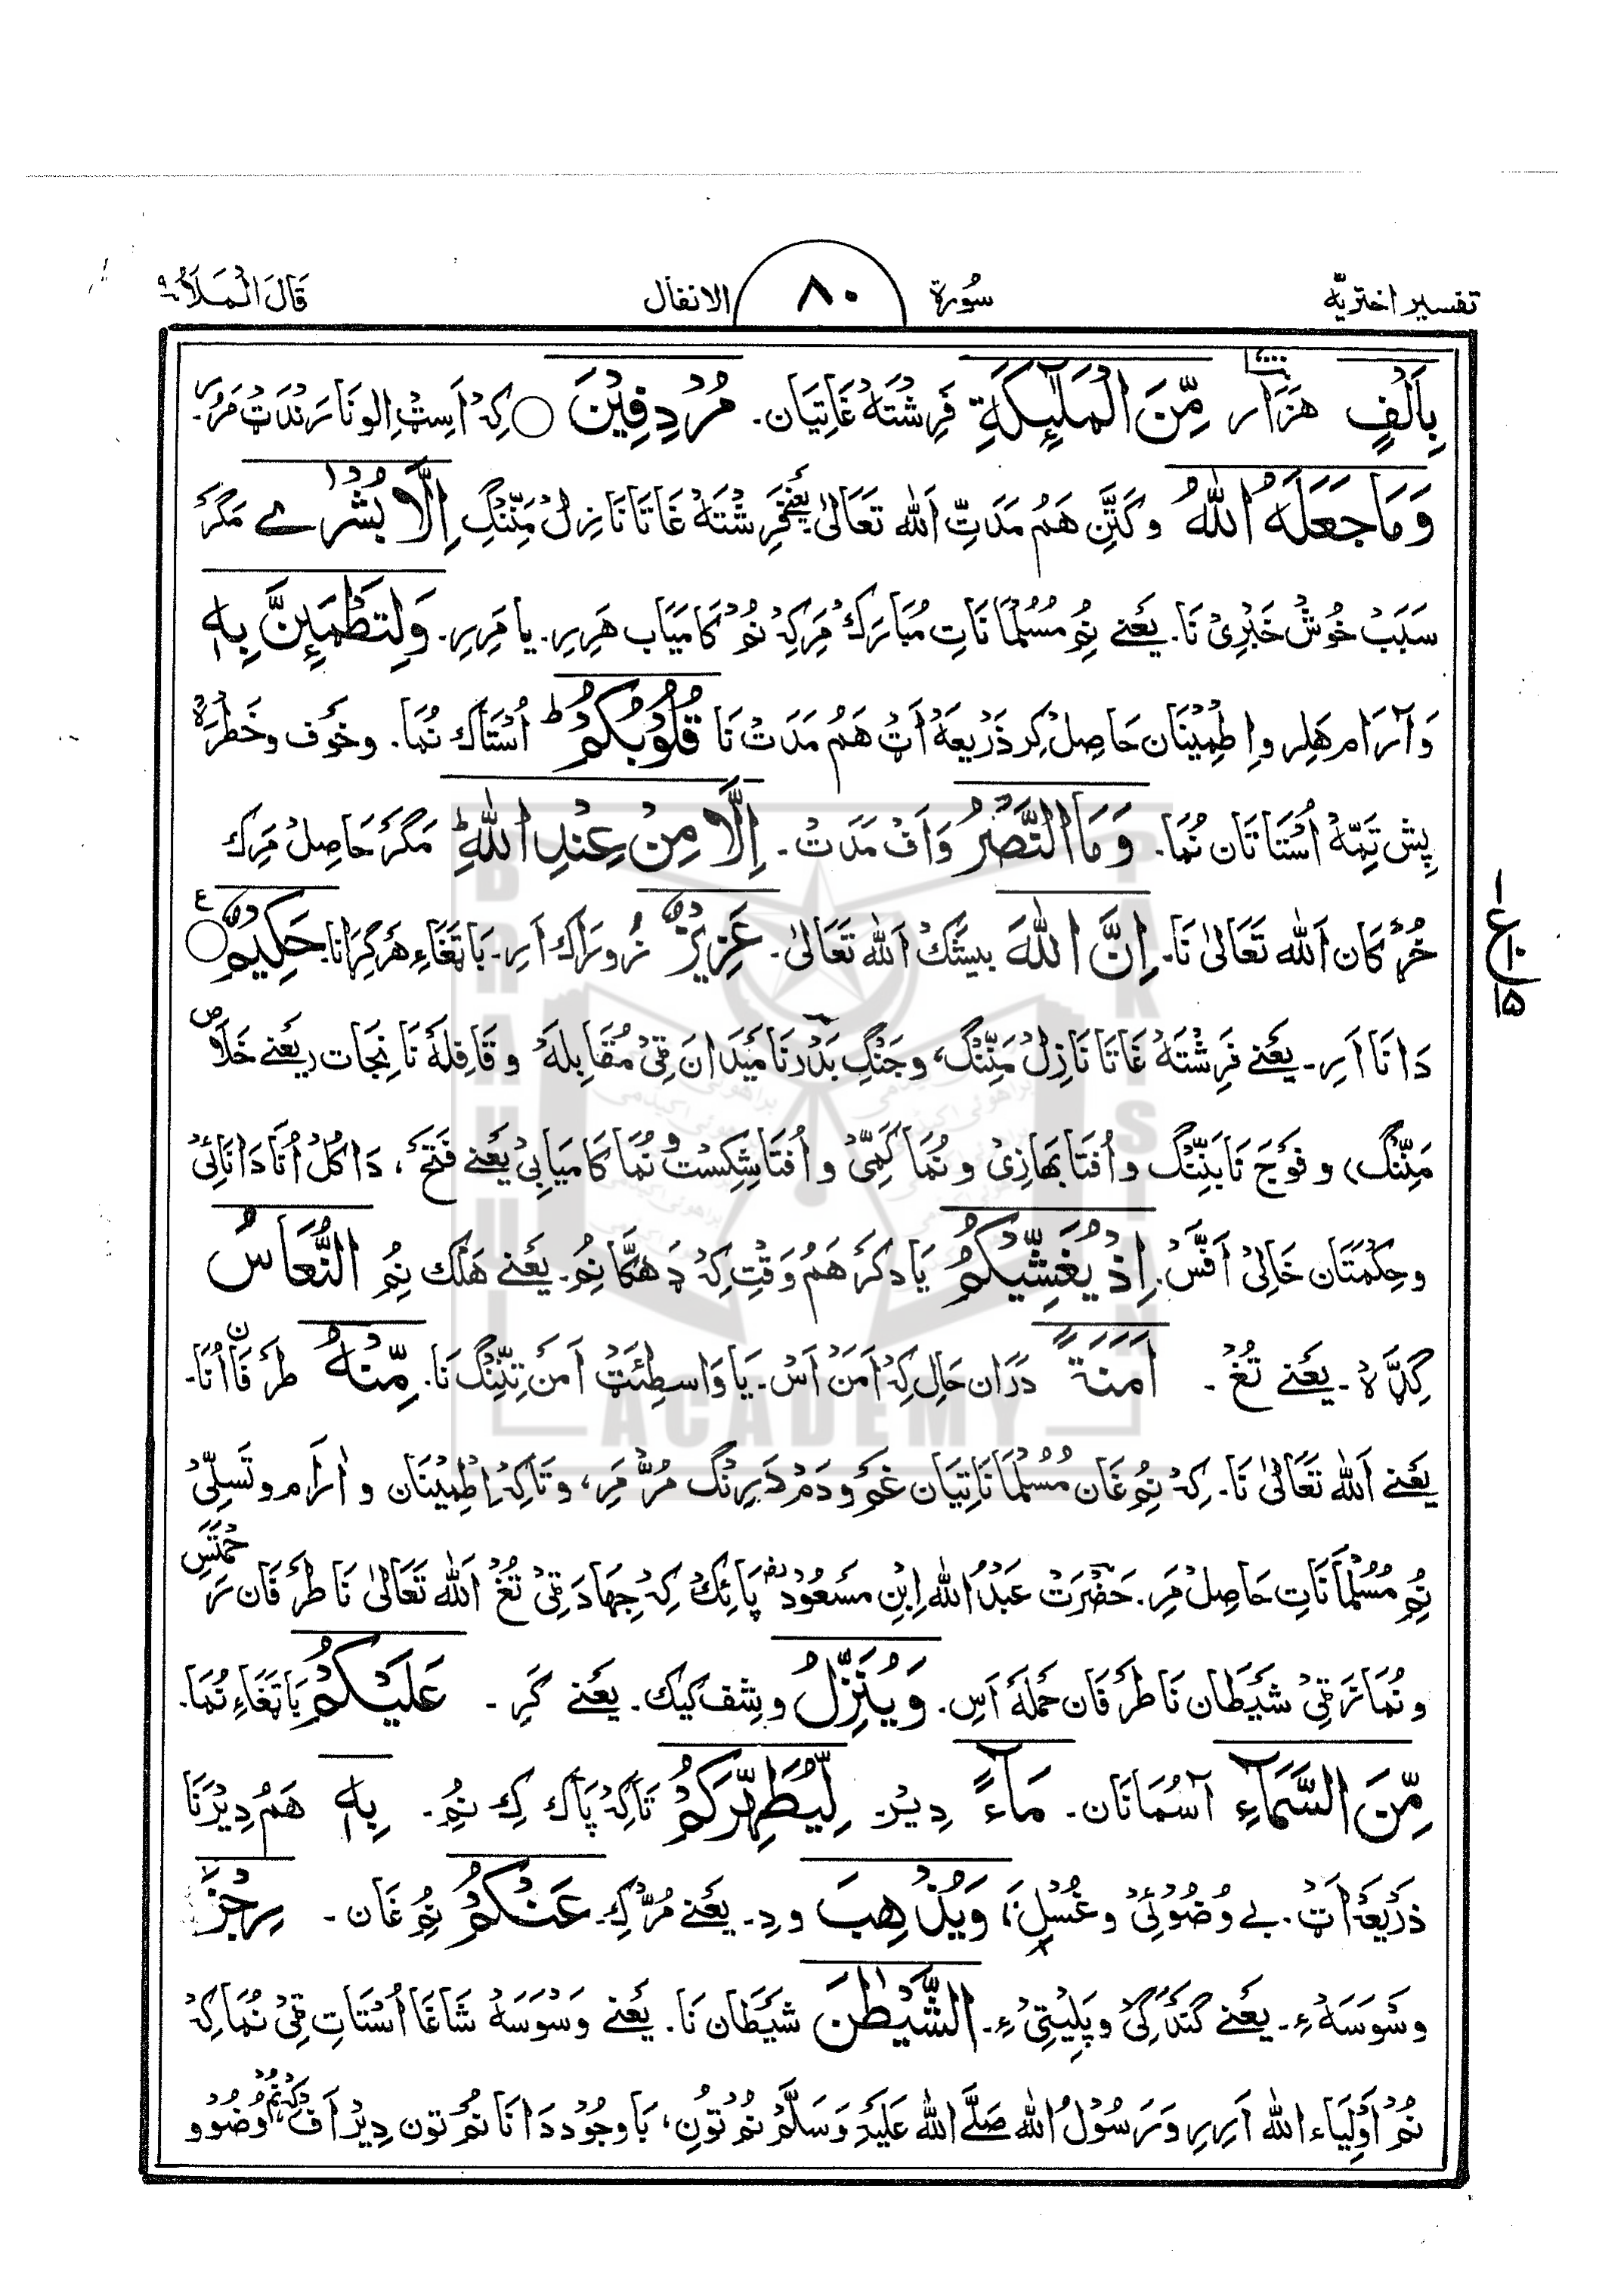 تفسیر اختریّه سُورة ٨٠ الانفال قَالَ الْمَلَأُ ٩
بِاَلْفٍ هَزَار مِّنَ الْمَلٰٓئِكَةِ فَرِشْتَهْ غَاتِیَان۔ مُرْدِفِیْنَ ○ کِہْ اَسِٹ اِلو نَا رَنْدَٹ مَرُر۔
وَمَا جَعَلَهُ اللّٰهُ و کَتَّنِ هَمُ مَدَتِّ اَللّٰه تَعَالیٰ یَعْنِے فَرِشْتَهْ غَاتَا نَازِلْ مَنِّنْگِ اِلَّا بُشْرٰے مَگَرْ
سَبَبْ خُوْش خَبَرِیْ نَا۔ یَعْنے نُم مُسُلْمَانَاتِ مُبَارَکْ مَرِ کِہْ نُمْ کَامْیَاب هَرِیر۔ یا مَرِیر۔ وَلِتَطْمَئِنَّ بِهٖ
وَ آرَام هَلِر و اِطْمِیْنَان حَاصِلْ کِر ذَرِیْعَهْ اَٹ هَمُ مَدَتْ نَا قُلُوْبُكُمْ ؕ اُسْتَاك نُمَا۔ و خَوف و خَطْرَہْ
پِش تِمَّهْ اُسْتَاتَان نُمَا۔ وَمَا النَّصْرُ وَ اَفْ مَدَتْ۔ اِلَّا مِنْ عِنْدِ اللّٰهِ ؕ مَگَرْ حَاصِلْ مَرِك
خُرْکَان اَللّٰه تَعَالیٰ نَا۔ اِنَّ اللّٰهَ بیشَكْ اَللّٰه تَعَالیٰ۔ عَزِیْزٌ زُورَاك اَرِ۔ بَاتْغَاءِ هَرْ کِرَانَا۔ حَكِیْمٌ ○ ع
دَانَا اَرِ۔ یَعْنے فَرِشْتَهْ غَاتَا نَازِلْ مَنِّنْگ، و جَنْگِ بَدْر نَا مَیْدَان ٹِیْ مُقَابِلَهْ و قَافِلَهْ نَا نِجَات (یَعْنے خَلَاص
مَنِّنْگ) و فَوْج نَا بَنِّنْگ و اُفْتَا بَهَازِیْ و نُمَا کَمِیّ و اُفْتَا شِکِسْت و نُمَا کَامْیَابِیْ یَعْنے فَتْحْ، دَا کُلْ اُنَا دَانَائِیْ
و حِکْمَتَان خَالِیْ اَفَّسْ۔ اِذْ یُغَشِّیْكُمُ یَاد کَرْ هَمُ وَقْتِ کِہْ ڈَهَکَّا نُم۔ یَعْنے هَلْك نُم النُّعَاسُ
کِلَّاہْ۔ یَعْنے تُغْ۔ اَمَنَةً دَرَان حَالِ کِہْ اَمَنْ اَسْ۔ یَا وَاسِطَئَٹ اَمَنْ تِنِّنْگ نَا۔ مِّنْهُ طَرَفَان اُنَا۔
یَعْنے اَللّٰه تَعَالیٰ نَا۔ کِہْ نُم غَان مُسُلْمَانَاتِیَان غَم و دَمْ دَیرِنْگ مُرّ مَرِ، و تَاکِہْ اِطْمِیْنَان و اٰرَام و تَسَلِّیْ
نُم مُسُلْمَانَاتِ حَاصِلْ مَرِ۔ حَضْرَتْ عَبْدُ اللّٰه اِبْنِ مَسْعُوْدؓ پَائِكْ کِہْ جِهَاد ٹِیْ تُغْ اَللّٰه تَعَالیٰ نَا طَرَفَان رَحْمَتَسِ
و نُمَاز ٹِیْ شَیْطَان نَا طَرَفَان حَمْلَهْ اَسِ۔ وَیُنَزِّلُ و شِف کَیك۔ یَعْنے کَرِ۔ عَلَیْكُمْ بَاتْغَاءِ نُمَا۔
مِّنَ السَّمَآءِ آسْمَانَان۔ مَآءً دِیر۔ لِّیُطَهِّرَكُمْ تَاکِہْ پَاك کِ نُم۔ بِهٖ هَمُ دِیْرْنَا
ذَرِیْعَهْ اَٹ۔ بے وُضُوئِیْ و غُسْلِ، وَیُذْهِبَ و دِ۔ یَعْنے مُرّ کِ۔ عَنْكُمْ نُم غَان۔ رِجْزَ
وَسْوَسَهْ ءِ۔ یَعْنے گَنْدَگِیْ و پَلِیْتِیْ ءِ۔ الشَّیْطٰنِ شَیْطَان نَا۔ یَعْنے وَسْوَسَهْ شَاغَا اُسْتَاتِ ٹِیْ نُمَا کِہْ
نُمْ اَوْلِیَاءِ اللّٰه اَرِیر وَ رَسُوْلُ اللّٰه صَلَّے اللّٰه عَلَیْهِ وَسَلَّمْ نُمْ تُون، بَاوجُود دَانَا نُمْ تون دِیْر اَفْ، کِہْ نُمْ وُضُوْ و
ع ١٥
BRAHUI ACADEMY PAKISTAN